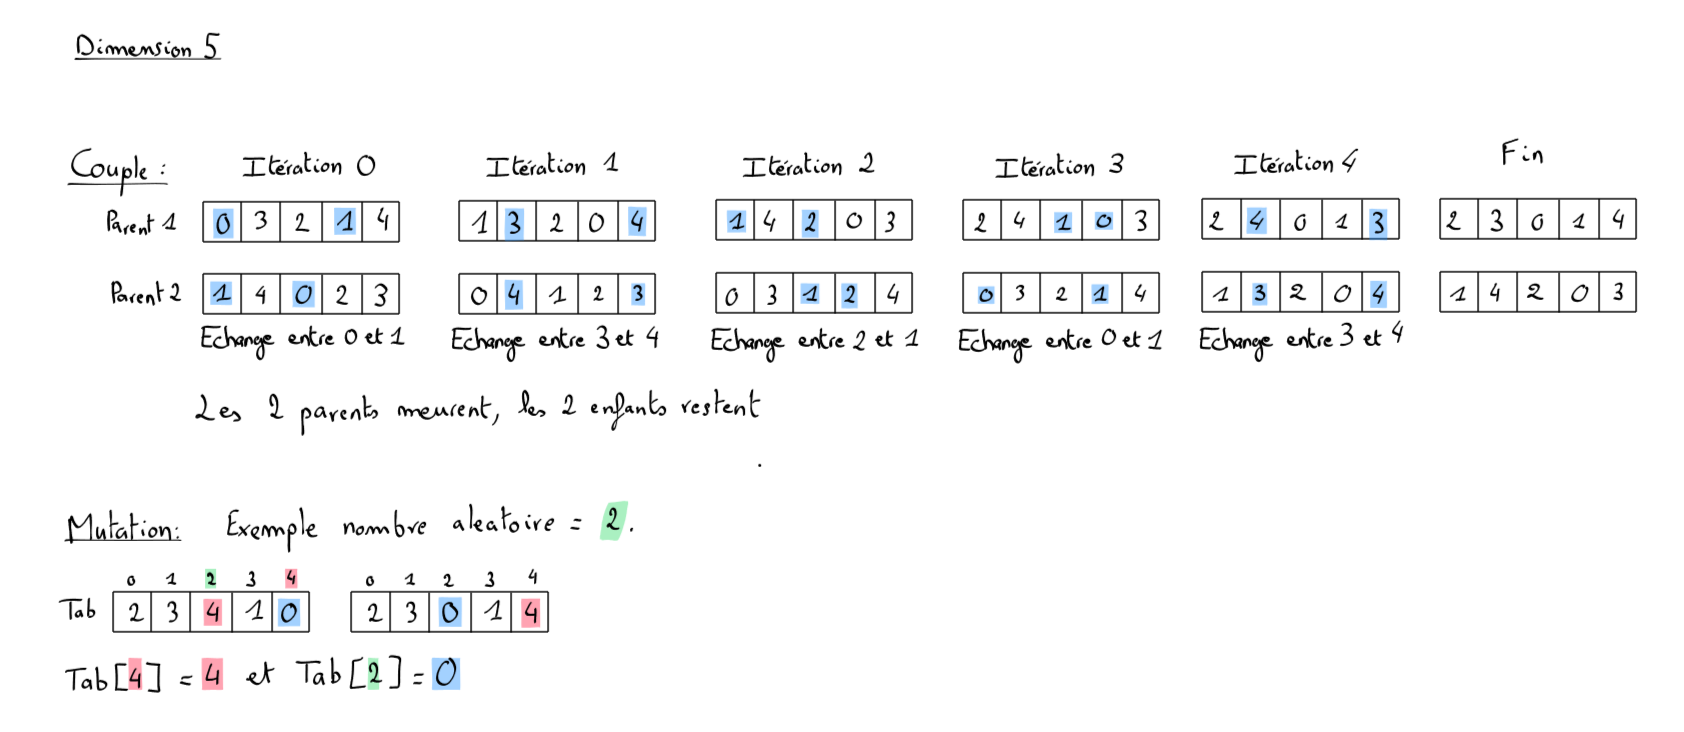 Dimension 5
Couple : Itération 0 Itération 1 Itération 2 Itération 3 Itération 4 Fin
Parent 1 0 3 2 1 4 1 3 2 0 4 1 4 2 0 3 2 4 1 0 3 2 4 0 1 3 2 3 0 1 4
Parent 2 1 4 0 2 3 0 4 1 2 3 0 3 1 2 4 0 3 2 1 4 1 3 2 0 4 1 4 2 0 3
Echange entre 0 et 1 Echange entre 3 et 4 Echange entre 2 et 1 Echange entre 0 et 1 Echange entre 3 et 4
Les 2 parents meurent, les 2 enfants restent
Mutation: Exemple nombre aleatoire = 2.
0 1 2 3 4 0 1 2 3 4
Tab 2 3 4 1 0 2 3 0 1 4
Tab[4] = 4 et Tab[2] = 0